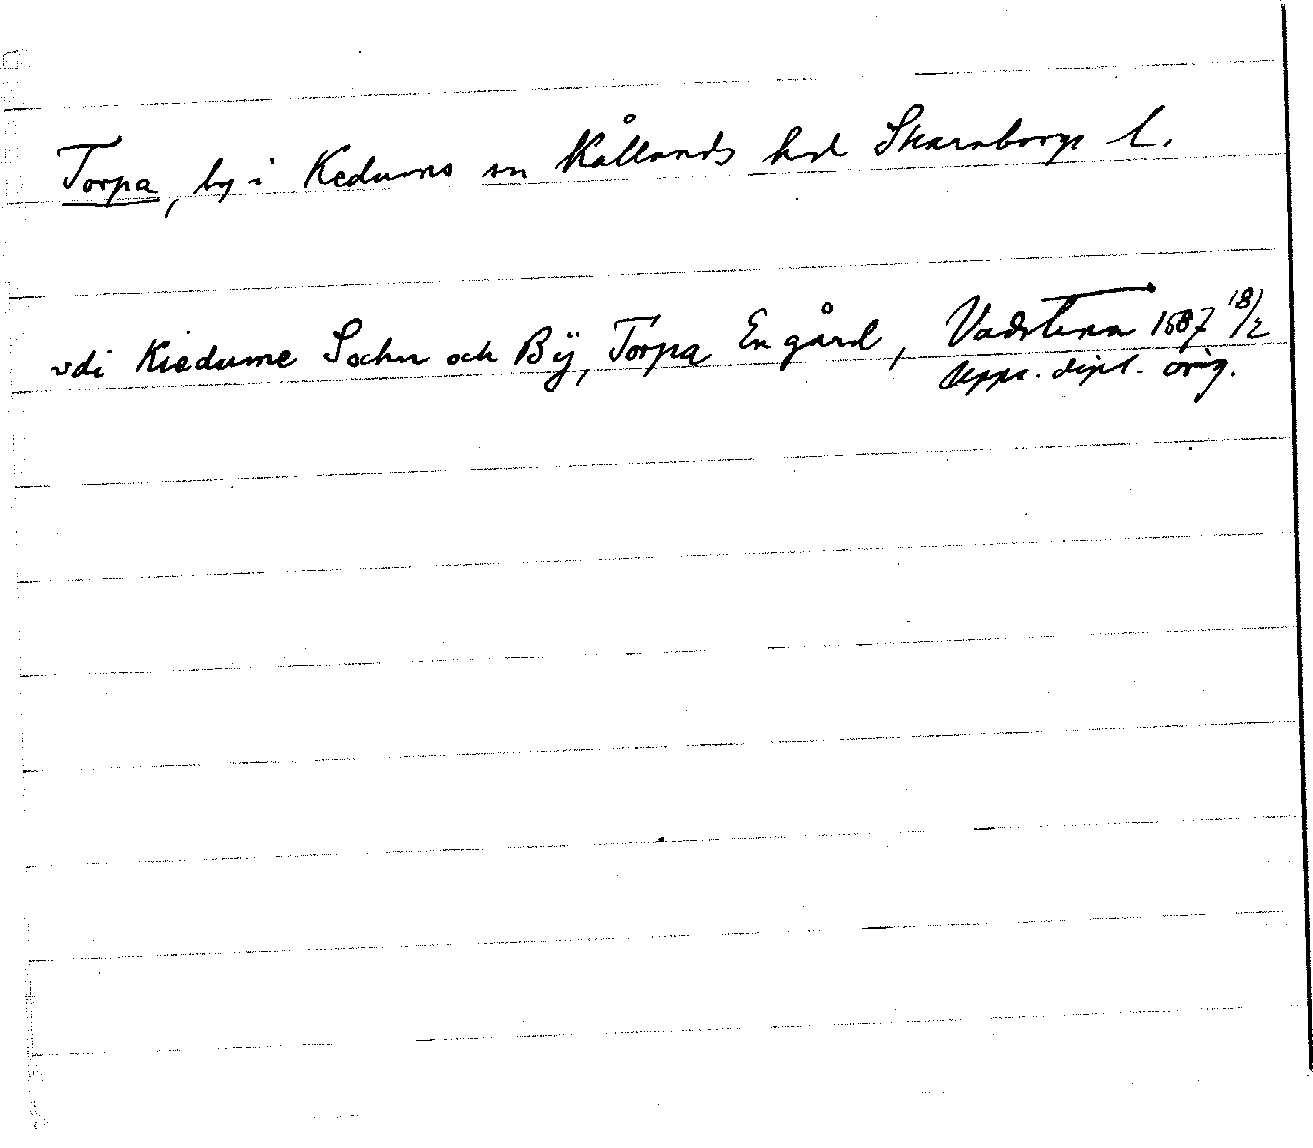 Torpa, by i Kedums sn Kållands hd Skaraborgs l.
vdi Kiedume Sochn och Bÿ, Torpa En gård, Vadstena 1587 18/2
Upps. dipl. orig.